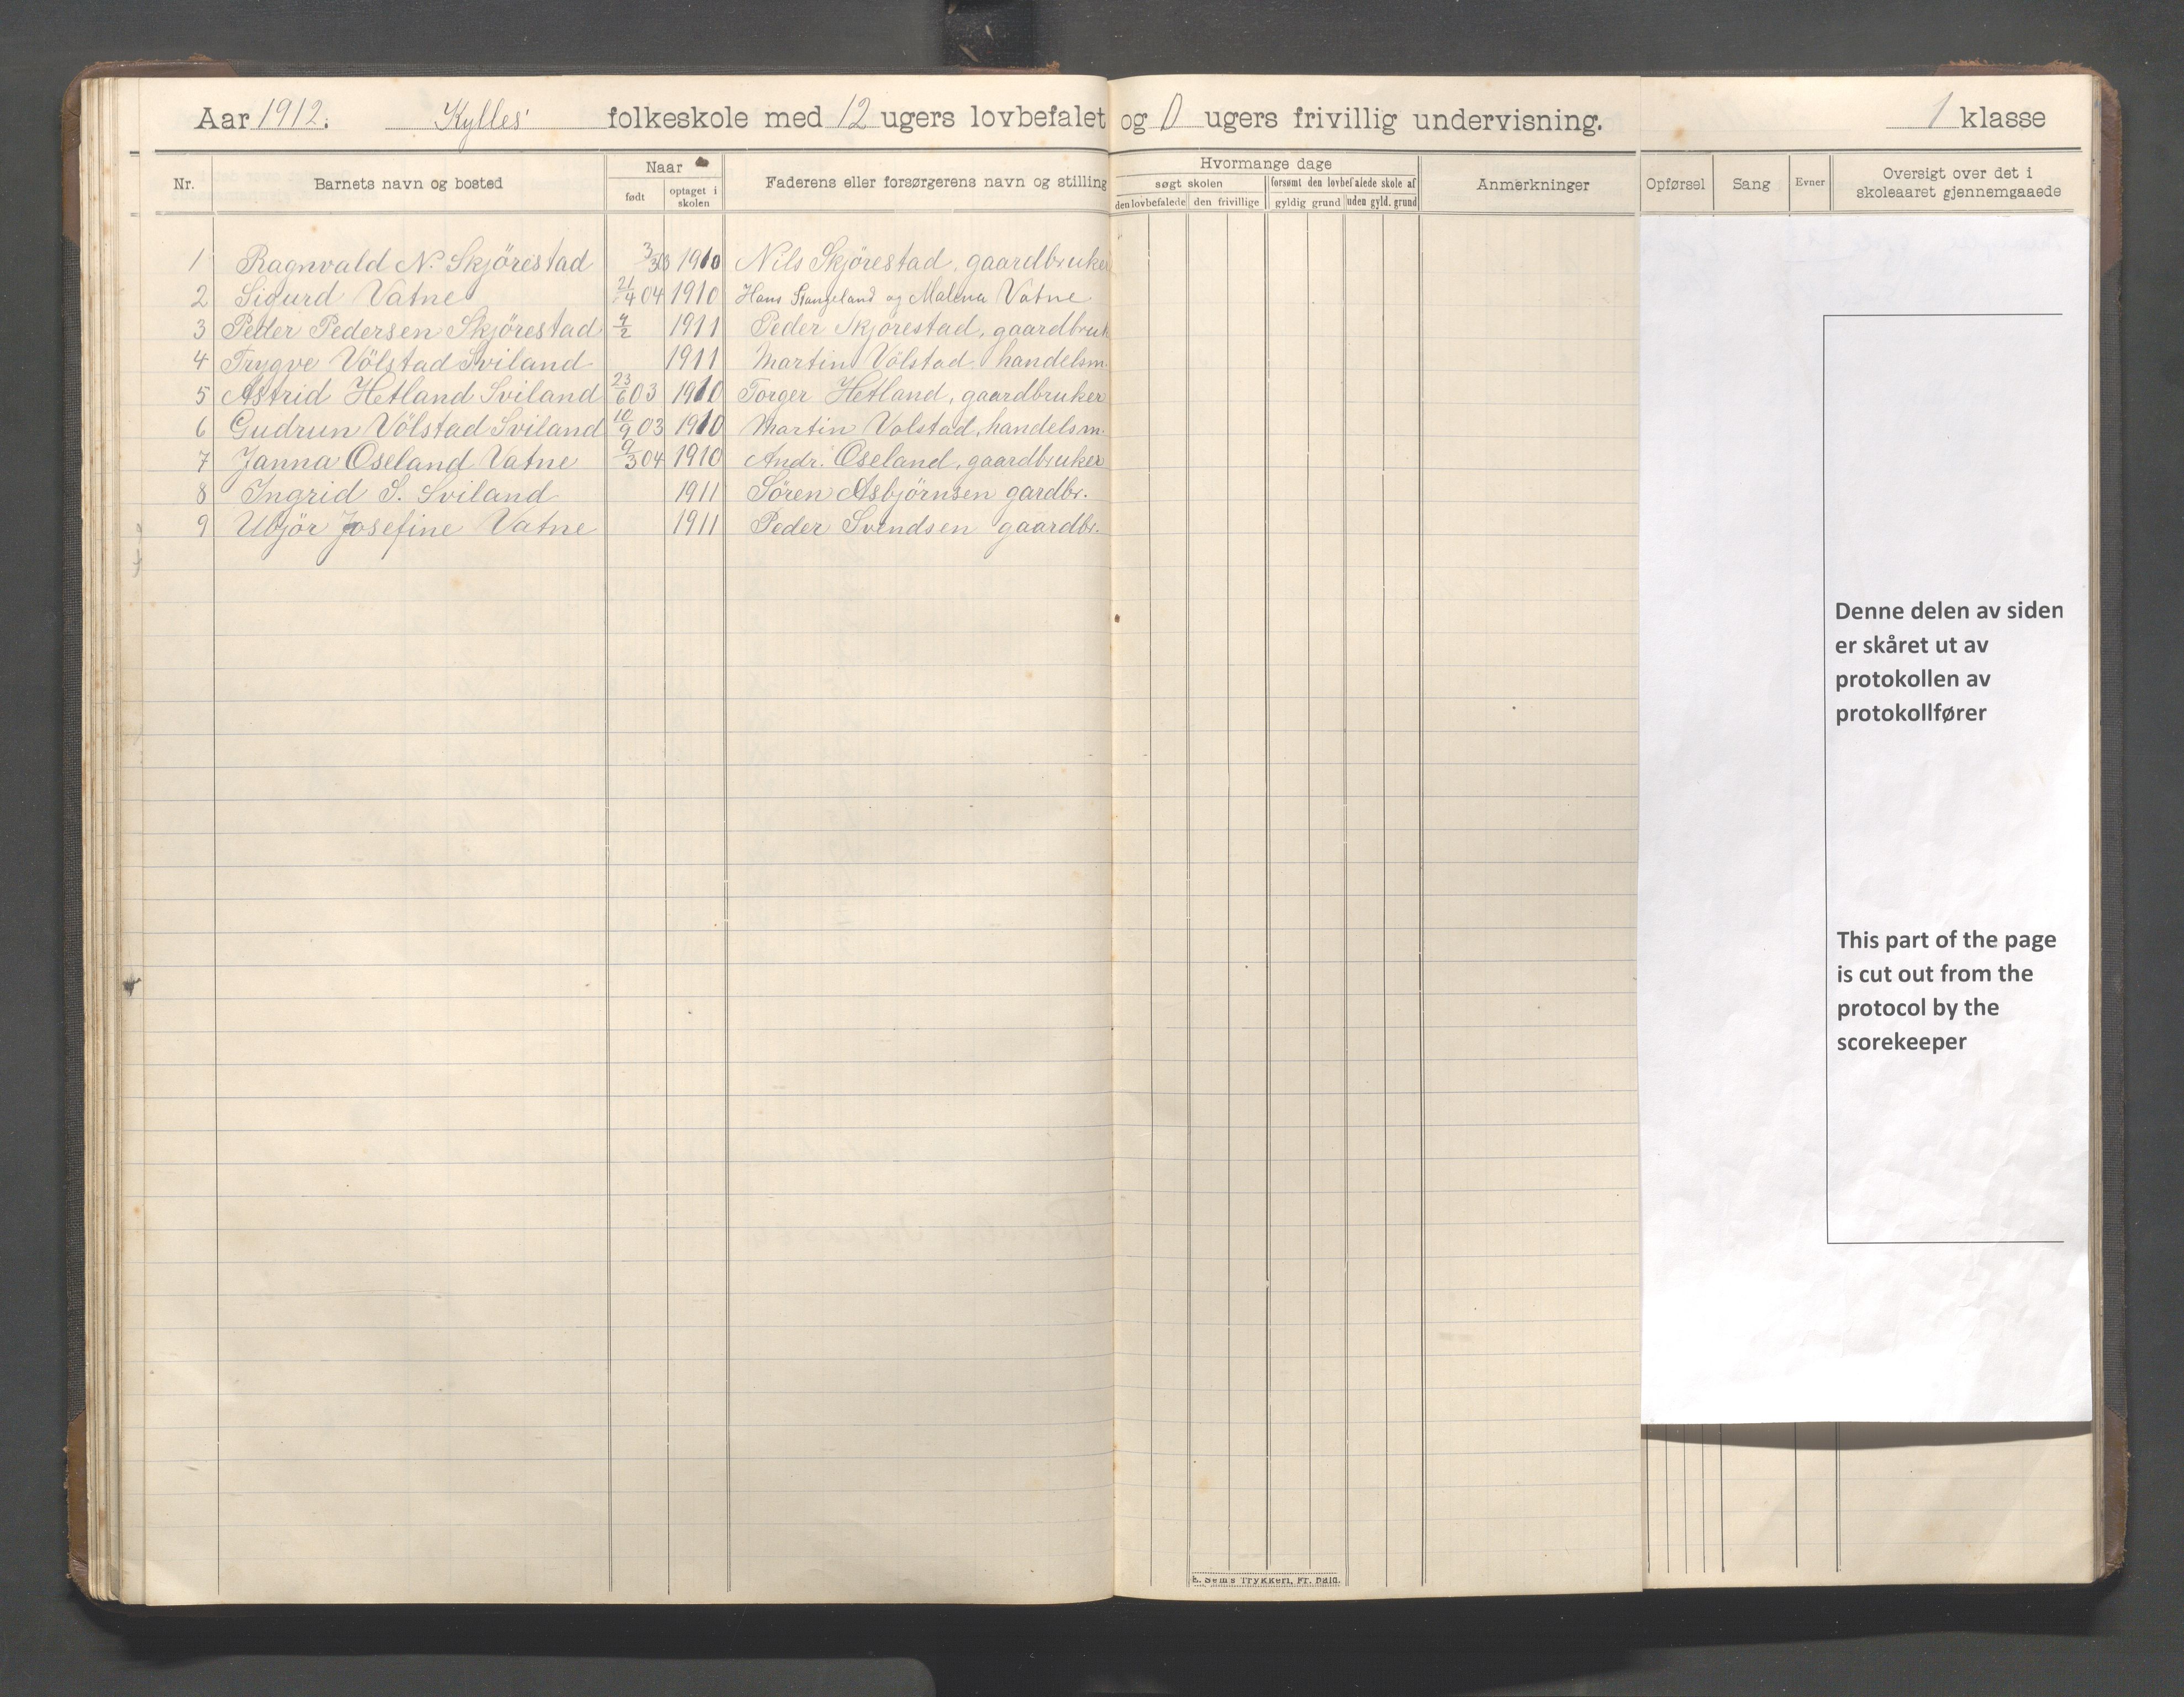 Aar 1912. Kylles' folkeskole med 12 ugers lovbefalet og 0 ugers frivillig undervisning. 1 klasse
Nr. Barnets navn og bosted Naar født optaget i skolen Faderens eller forsørgerens navn og stilling Hvormange dage søgt skolen den lovbefalede den frivillige forsømt den lovbefalede skole af gyldig grund uden gyld. grund Anmerkninger Opførsel Sang Evner Oversigt over det i skoleaaret gjennemgaaede
1 Ragnvald N. Skjörestad 1910 Nils Skjörestad, gaardbruker
2 Sigurd Vatne 21/4 04 1910 Hans Stangeland og Malena Vatne
3 Peder Pedersen Skjörestad 1911 Peder Skjorestad, gaardbruk
4 Trygve Völstad Sviland 1911 Martin Völstad handelsm.
5 Astrid Hetland Sviland 23/6 03 1910 Torger Hetland, gaardbruker
6 Gudrun Völstad Sviland 10/9 03 1910 Martin Volstad, handelsm.
7 Janna Oseland Vatne 9/3 04 1910 Andr. Oseland, gaardbruker
8 Ingrid S. Sviland 1911 Sören Asbjörnsen gardbr.
9 Ubjör Josefine Vatne 1911 Peder Svendsen gaardbr.
Denne delen av siden
er skåret ut av
protokollen av
protokollfører
This part of the page
is cut out from the
protocol by the
scorekeeper
E. Sems Trykkeri, Fr. hald.